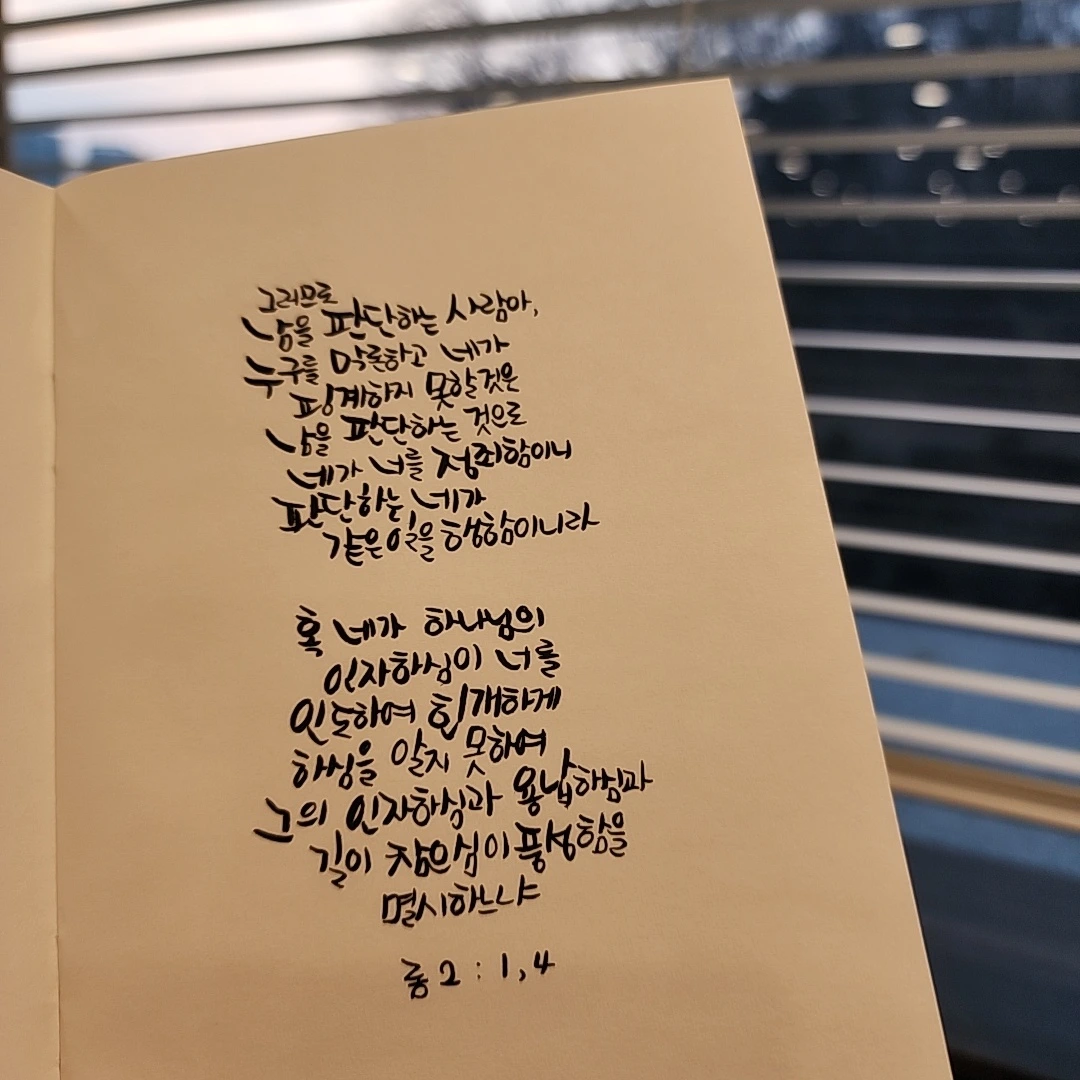 그러므로
남을 판단하는 사람아,
누구를 막론하고 네가
핑계하지 못할것은
남을 판단하는 것으로
네가 너를 정죄함이니
판단하는 네가
같은일을 행함이니라
혹 네가 하나님의
인자하심이 너를
인도하여 회개하게
하심을 알지 못하여
그의 인자하심과 용납하심과
길이 참으심이 풍성함을
멸시하느냐
롬 2 : 1, 4